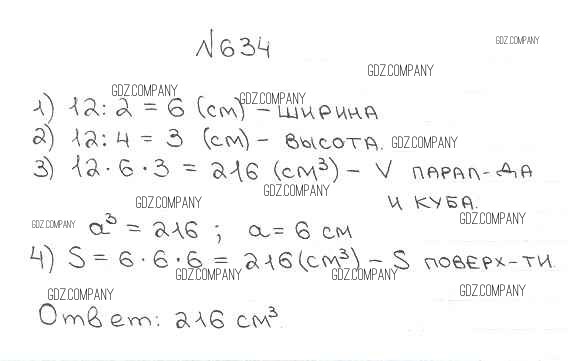 N634
GDZ.COMPANY
GDZ.COMPANY
GDZ.COMPANY
GDZ.COMPANY
1) 12:2 = 6 (см) – ширина
2) 12:4 = 3 (см) – высота.
GDZ.COMPANY
3) 12·6·3 = 216 (см³) – V парал-да
GDZ.COMPANY
и куба.
GDZ.COMPANY
GDZ.COMPANY
GDZ.COMPANY
a³ = 216; a = 6 см
4) S = 6·6·6 = 216 (см³) – S поверх-ти.
GDZ.COMPANY
GDZ.COMPANY
GDZ.COMPANY
GDZ.COMPANY
Ответ: 216 см³.